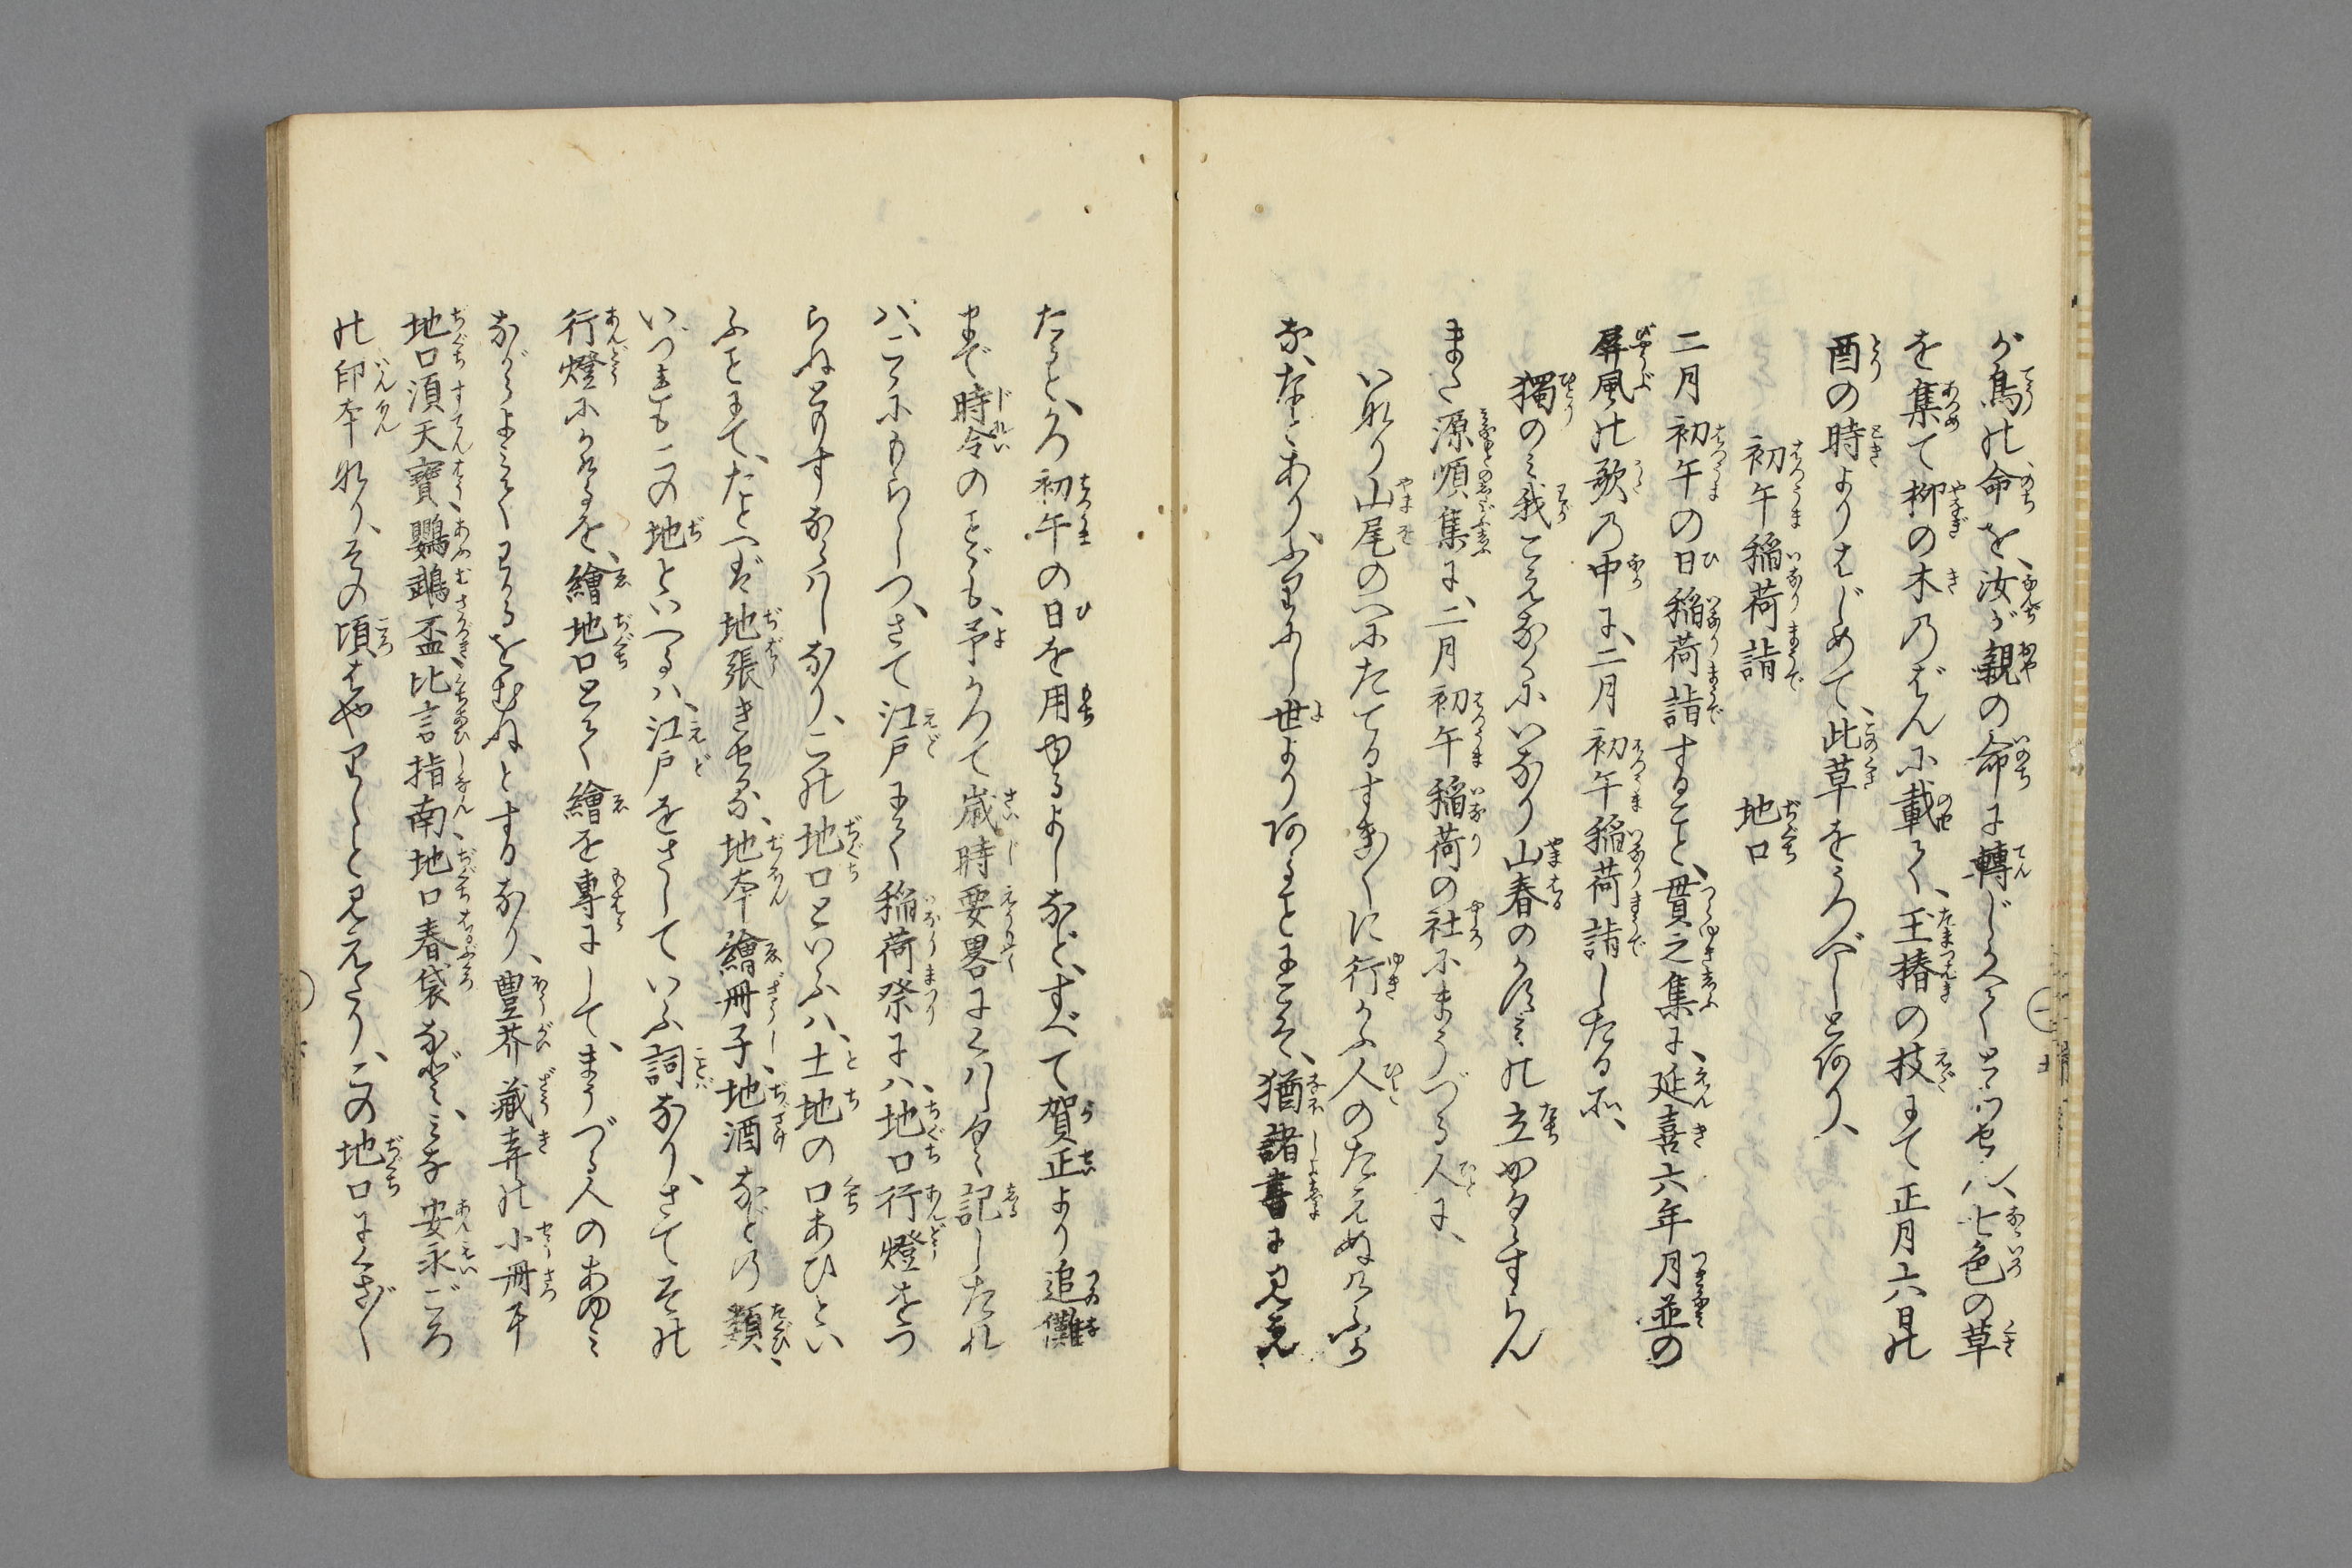 が鳥の命を、汝が親の命に轉じかへてとらせん、七色の草
を集て柳の木のばんに載て、玉椿の枝にて正月六日の
酉の時よりはじめて、此草をうつべしとあり、
初午稲荷詣　地口
二月初午の日稲荷詣すること、貫之集に、延喜六年月並の
屏風の歌の中に、二月初午稲荷詣したる所、
獨のみ我こえなくにいなり山春のかすみの立かくすらん
また源順集に、二月初午稲荷の社にまうづる人に、
いなり山尾のへにたてるすぎ〳〵に行かふ人のたえぬけふか
な、などあり、ふりにし世よりあることにこそ、猶諸書に見え
たると、かつ初午の日を用ゆるよしなど、すべて賀正より追儺
まで時令のことども、予かつて歳時要畧にくはしく記したれ
バ、こゝにもらしつ、さて江戸にて稲荷祭にハ、地口行燈をつ
らねともすならハしなり、この地口といふハ、土地の口あひとい
ふことにて、たとへバ地張きせる、地本繪冊子、地酒などの類、
いづれもこの地といへるハ、江戸をさしていふ詞なり、さてその
行燈にかけるを、繪地口とて繪を專にして、まうづる人のあゆみ
ながらよみてわかるをむねとするなり、豊芥藏弆の小冊子
地口須天寶、鸚鵡盃、比言指南、地口春袋など、みな安永ごろ
の印本なり、その頃はやりしと見えたり、この地口にくさ〴〵